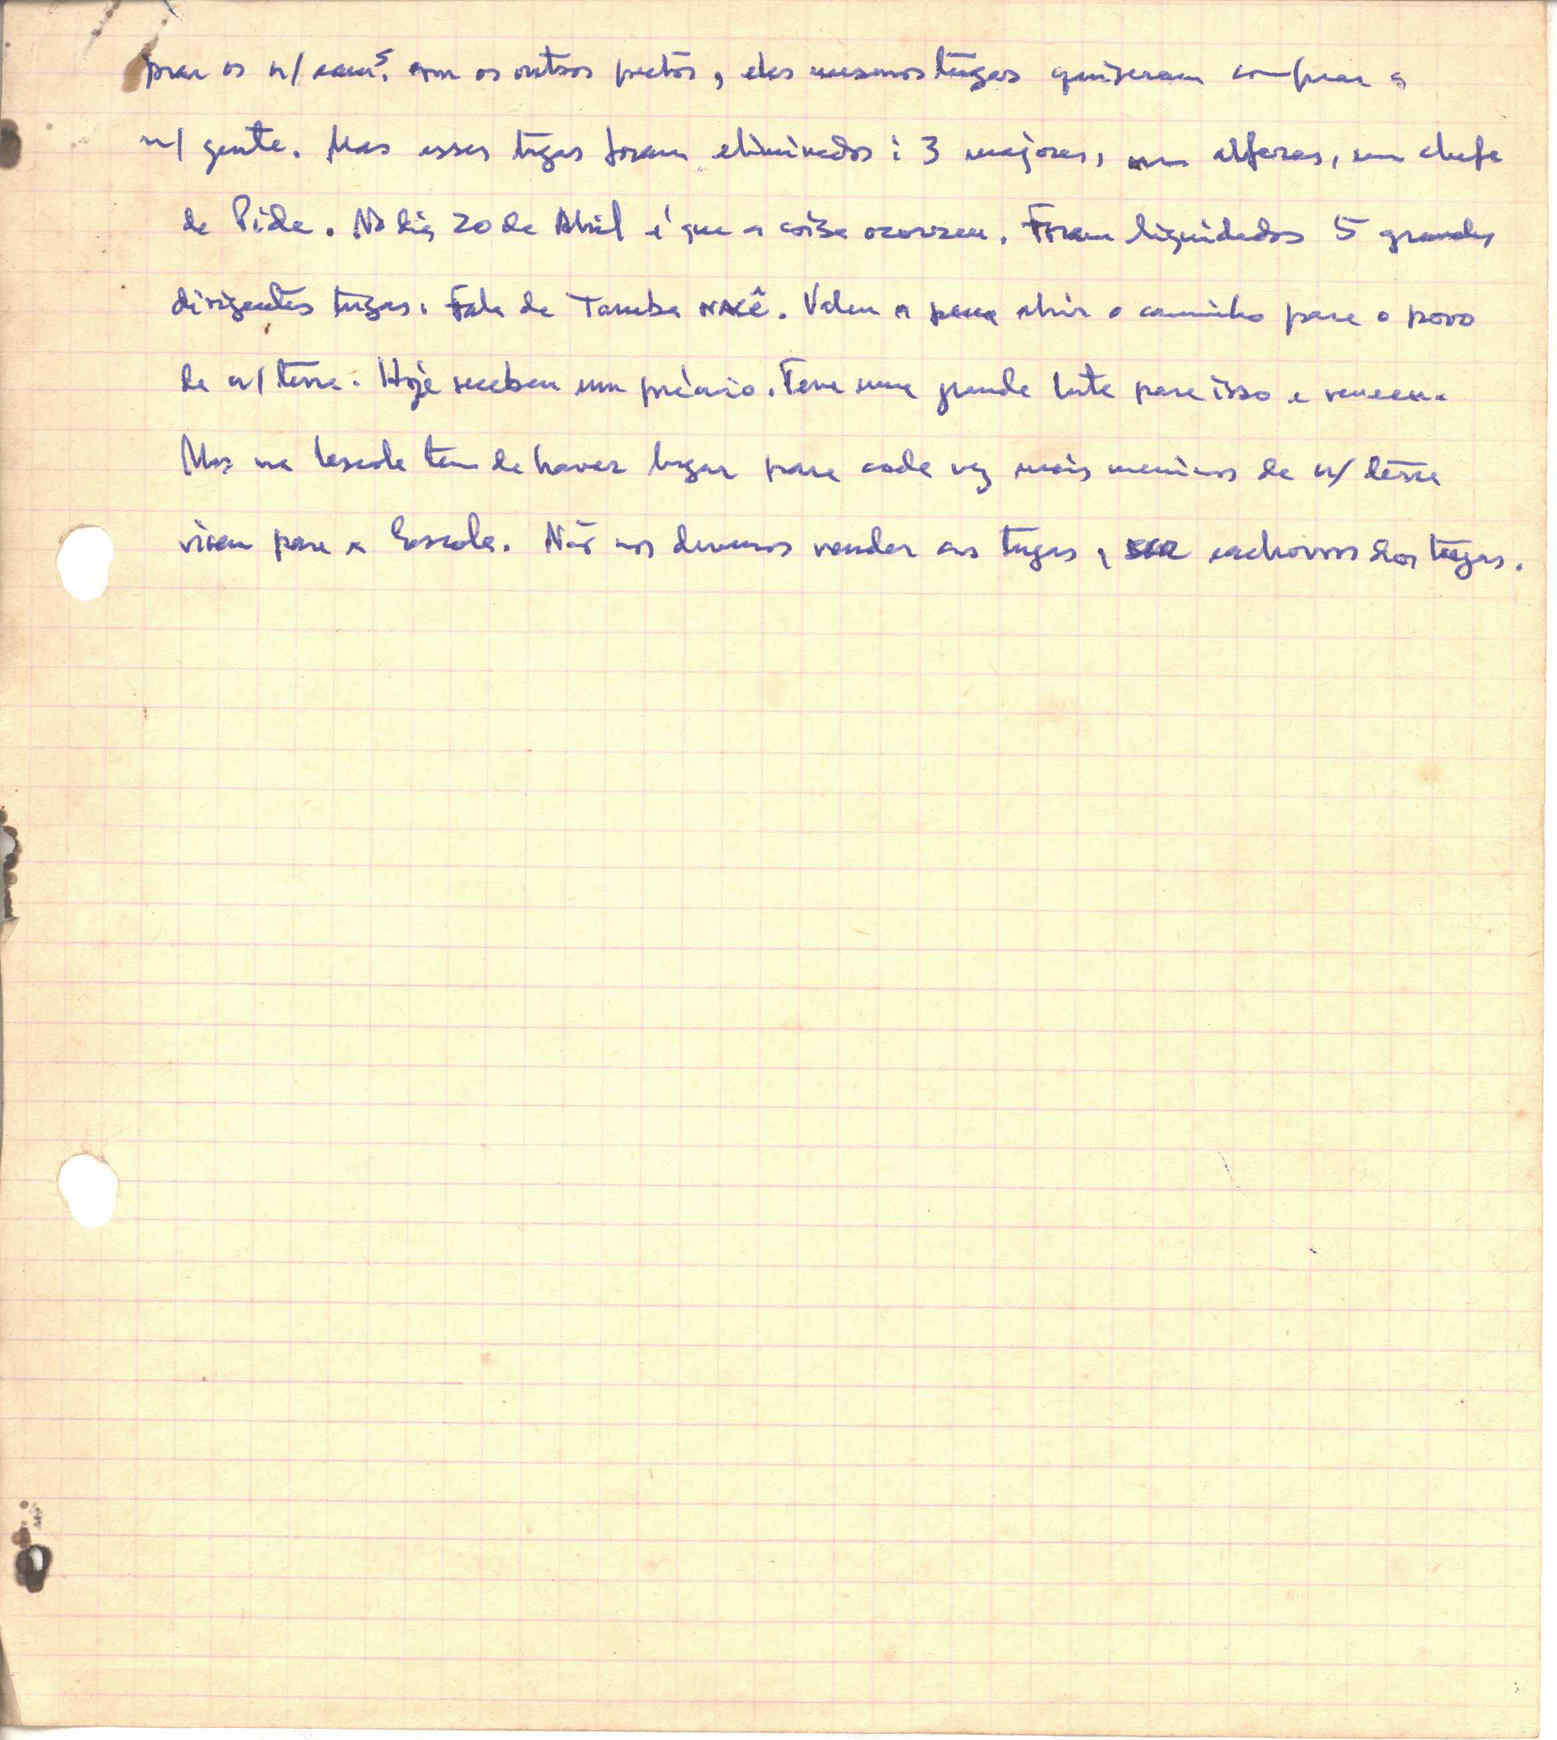 prar os n/ cam.s com os outros pretos, eles mesmos tugas quiseram comprar a
n/ gente. Mas esses tugas foram eliminados: 3 majores, um alferes, um chefe
da Pide. No dia 20 de Abril é que a coisa ocorreu. Foram liquidados 5 grandes
dirigentes tugas. Fala de Tamba NACÊ. Valeu a pena abrir o caminho para o povo
da n/ terra. Hoje recebeu um prémio. Teve uma grande luta para isso e venceu.
Mas na Escola tem de haver lugar para cada vez mais meninos da n/ terra
virem para a Escola. Não nos devemos vender aos tugas, ser cachorros dos tugas.